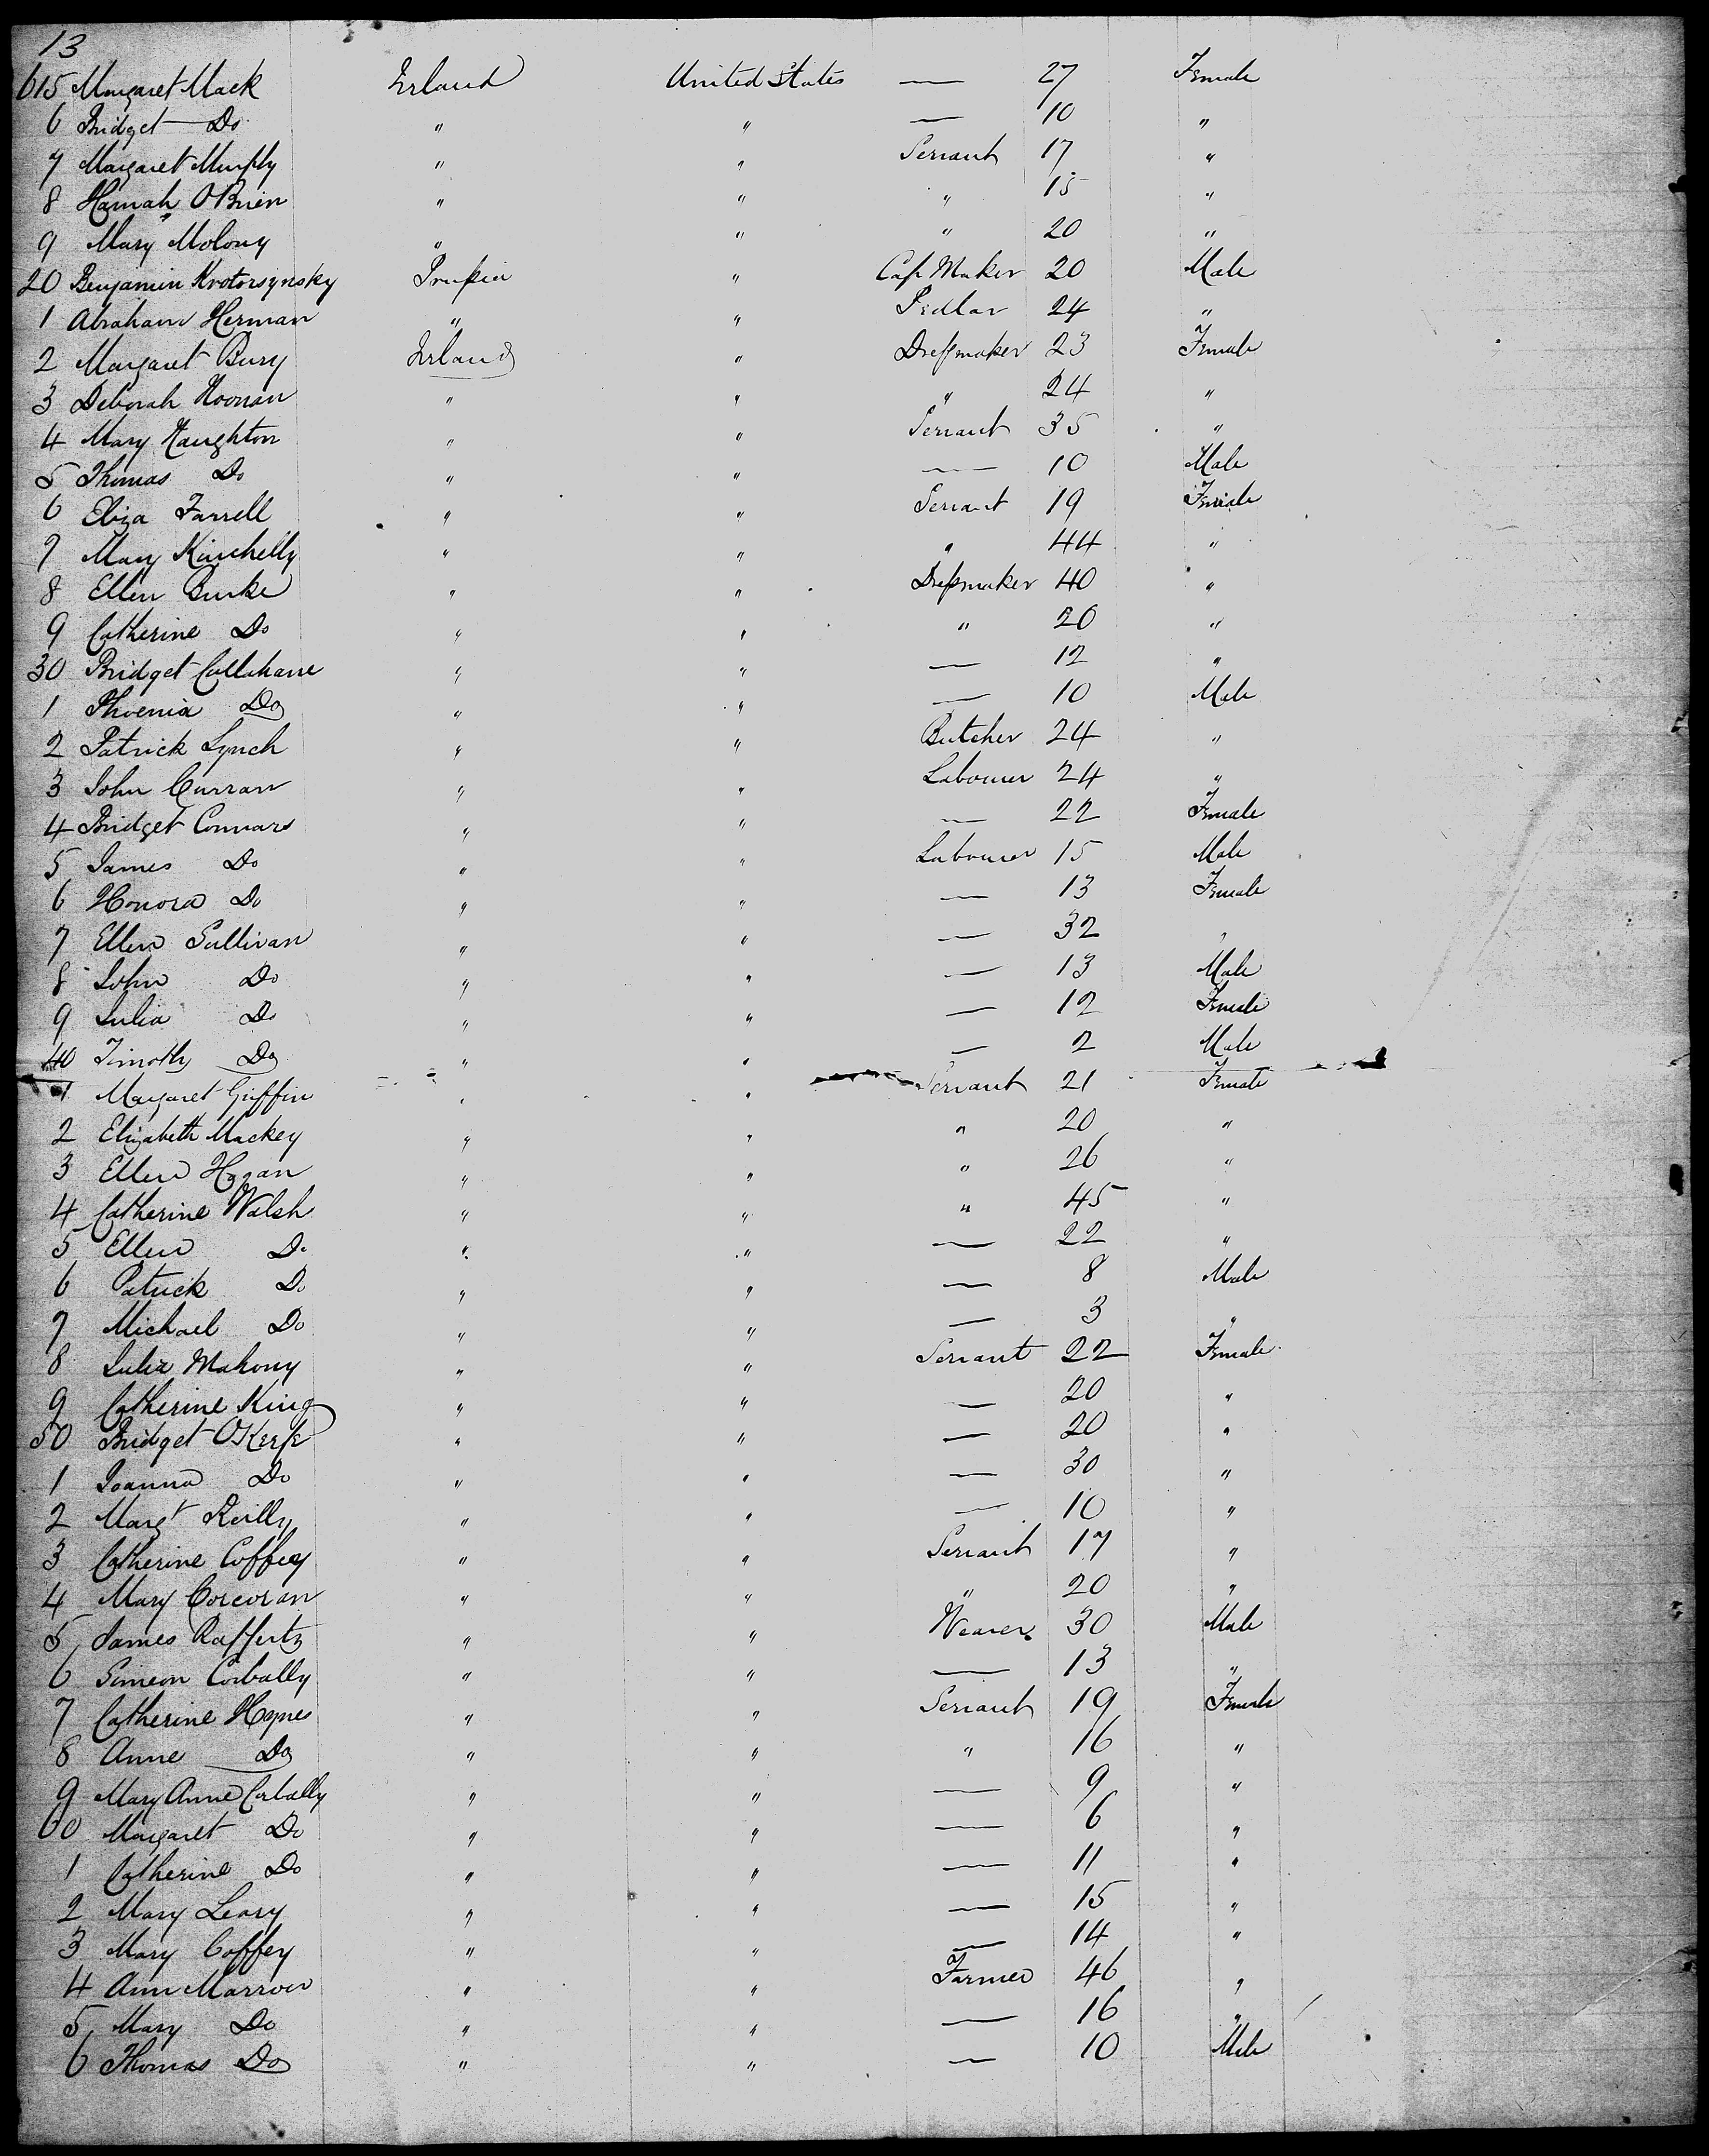 13
615 Margaret Mack Irland United States — 27 Female
6 Bridget Do " " — 10 "
7 Margaret Murphy " " Servant 17 "
8 Hannah OBrien " " " 15 "
9 Mary Molony " " " 20 "
20 Benjamin Krotorsynsky Prussia " Cap Maker 20 Male
1 Abraham Herman " " Pedlar 24 "
2 Margaret Bury Irland " Dressmaker 23 Female
3 Deborah Noonan " " " 24 "
4 Mary Naughton " " Servant 35 "
5 Thomas Do " " — 10 Male
6 Eliza Farrell " " Servant 19 Female
7 Mary Kinchelly " " " 44 "
8 Ellen Burke " " Dressmaker 40 "
9 Catherine Do " " " 20 "
30 Bridget Callahane " " — 12 "
1 Phoenix Do " " — 10 Male
2 Patrick Lynch " " Butcher 24 "
3 John Curran " " Labourer 24 "
4 Bridget Connars " " — 22 Female
5 James Do " " Labourer 15 Male
6 Honora Do " " — 13 Female
7 Ellen Sullivan " " — 32 "
8 John Do " " — 13 Male
9 Julia Do " " — 12 Female
40 Timothy Do " " — 2 Male
1 Margaret Griffin " " Servant 21 Female
2 Elizabeth Mackey " " " 20 "
3 Ellen Hogan " " " 26 "
4 Catherine Walsh " " " 45 "
5 Ellen Do " " — 22 "
6 Patrick Do " " — 8 Male
7 Michael Do " " — 3 "
8 Julia Mahony " " Servant 22 Female
9 Catherine King " " — 20 "
50 Bridget OKeefe " " — 20 "
1 Joanna Do " " — 30 "
2 Margt Reilly " " — 10 "
3 Catherine Coffey " " Servant 17 "
4 Mary Corcoran " " " 20 "
5 James Raffertz " " Weaver 30 Male
6 Simeon Corbally " " — 13 "
7 Catherine Haynes " " Servant 19 Female
8 Anne Do " " " 16 "
9 Mary Anne Corbally " " — 9 "
60 Margaret Do " " — 6 "
1 Catherine Do " " — 11 "
2 Mary Leary " " — 15 "
3 Mary Coffey " " — 14 "
4 Ann Marrow " " Farmer 46 "
5 Mary Do " " — 16 "
6 Thomas Do " " — 10 Male